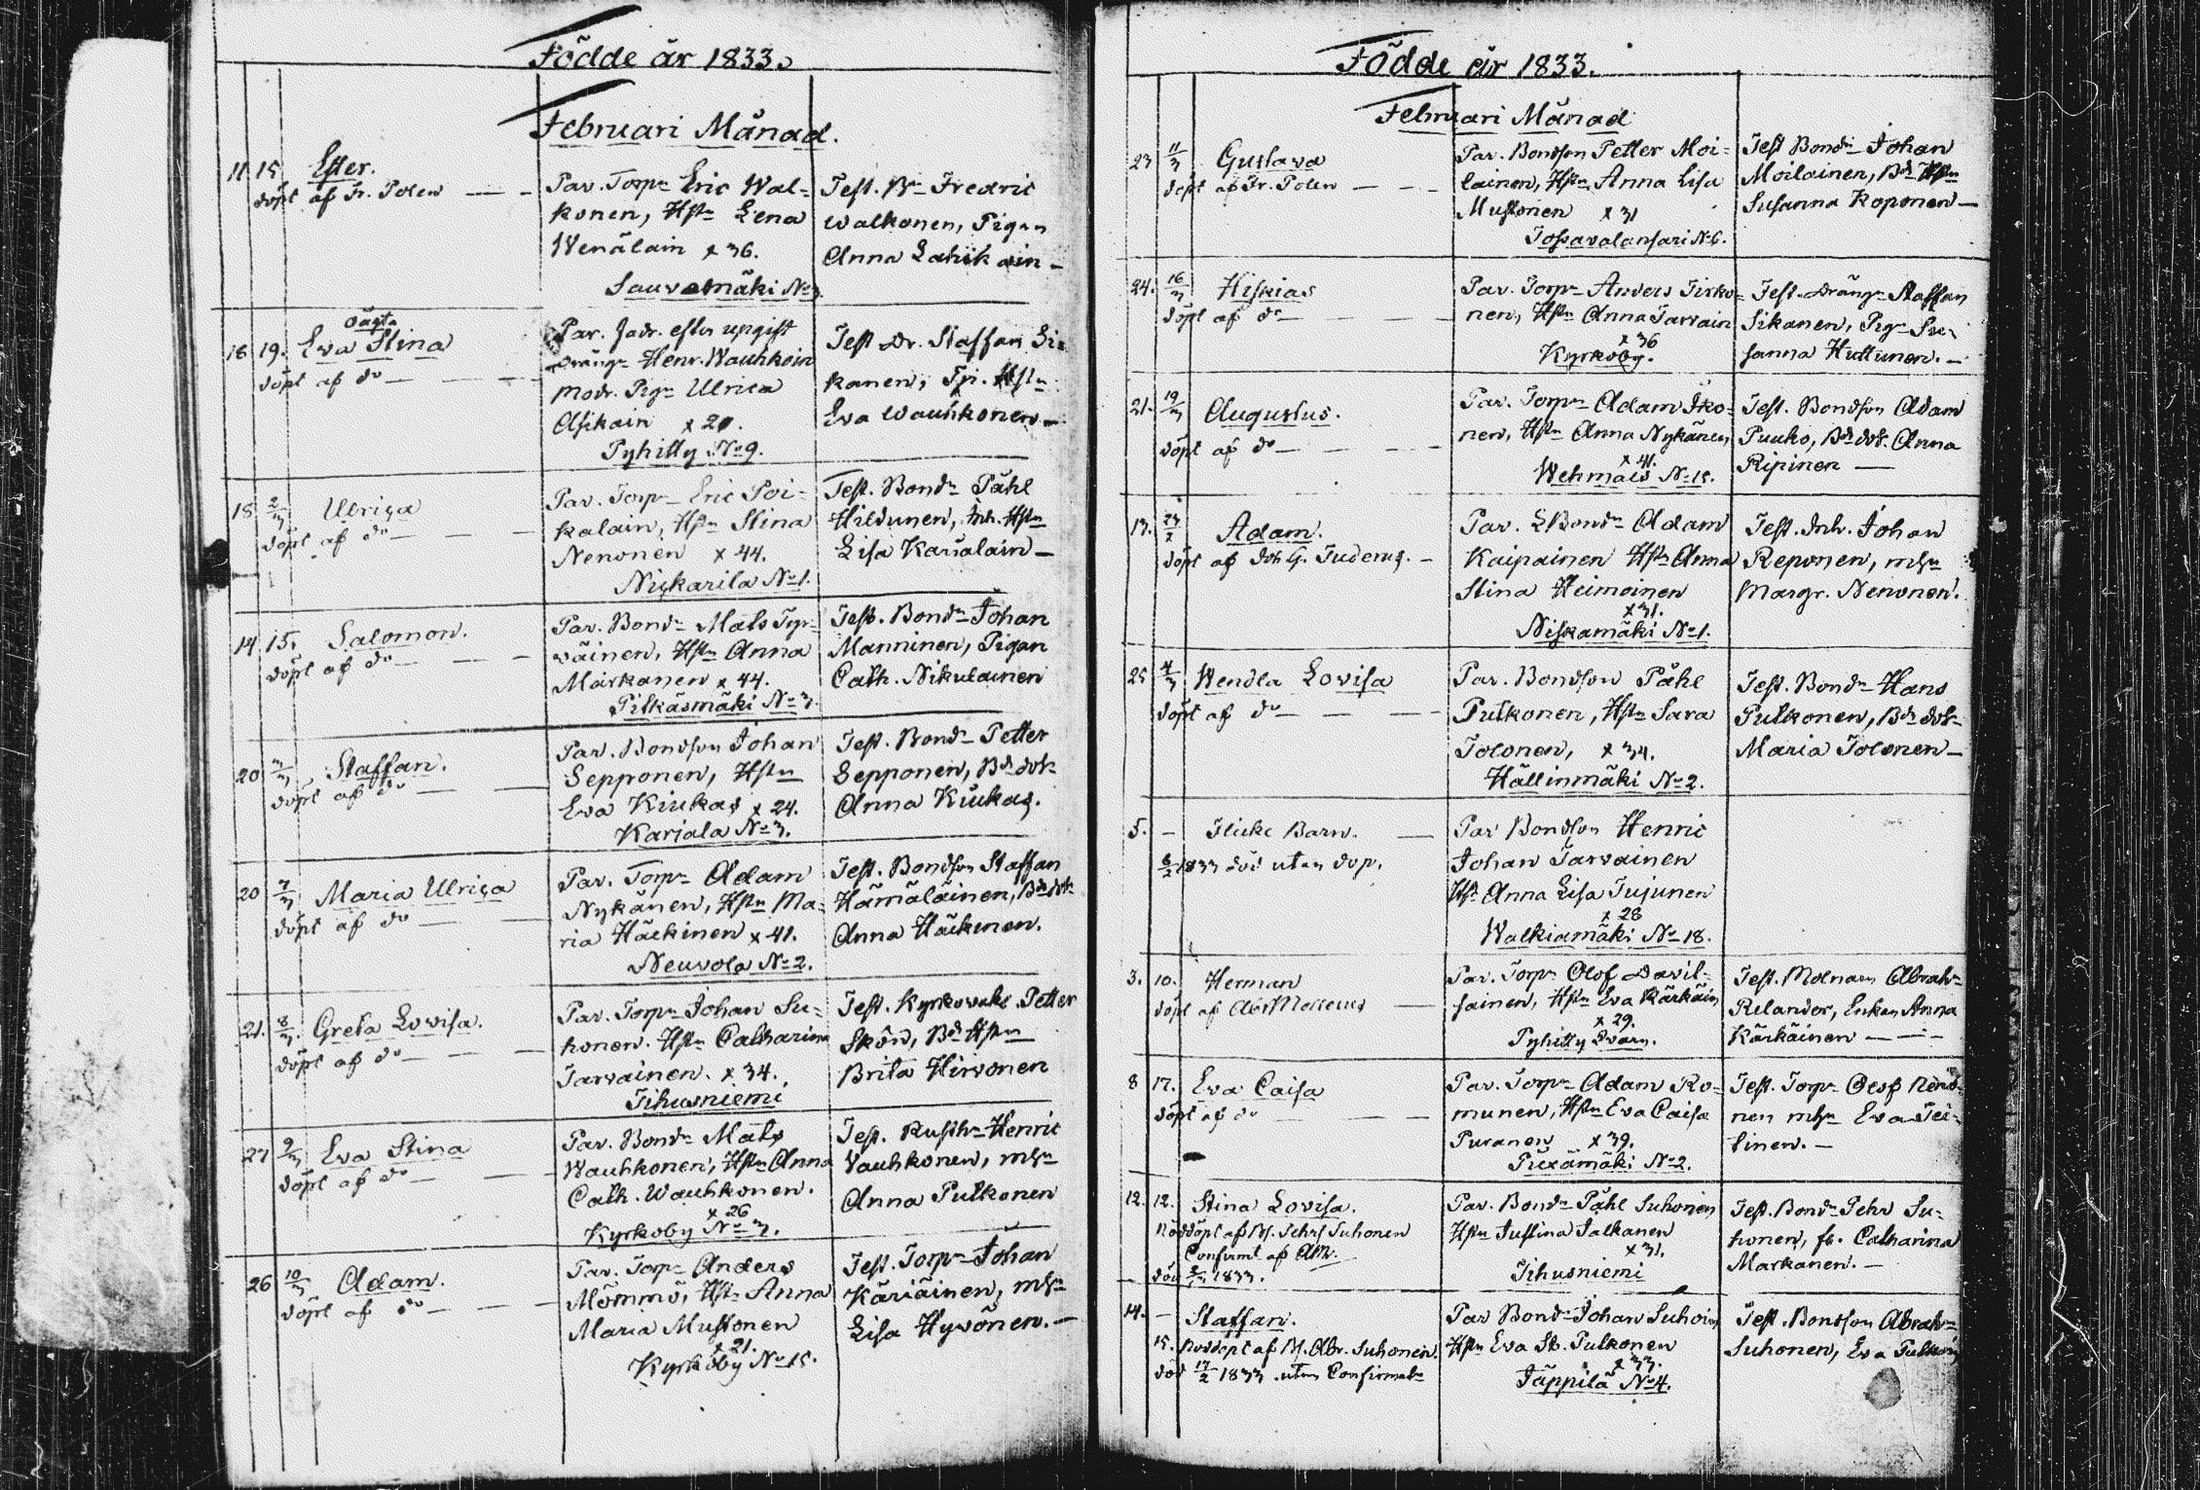 Födde år 1833.
Februari Månad.
11. 15. Ester.
döpt af Fr. Polen
Par. Torpn Eric Wal-
konen, Hstn Lena
Wenälain x 36.
Sauvosmäki No 3.
Test. Bn Fredric
Walkonen, Pigan
Anna Lahikain
16 19. oägta
Eva Stina
döpt af do
Par. fadr. efter upgift
Dräng Henr. Wauhkoin
modr. Pgn Ulrica
Asikain x 20.
Pyhitty No 9.
Test Dr. Staffan Si-
kanen,
Eva Wauhkonen
18 2/3 Ulrica
döpt af do
Par. Torpn Eric Poi-
kalain, Hstn Stina
Nenonen x 44.
Niskarila No 1.
Test. Bondn Påhl
Hildunen, Inh. Hstn
Lisa Karialain
14 15. Salomon.
döpt af do
Par. Bondn Mats Tyr-
väinen, Hstn Anna
Markanen x 44.
Pitkäsmäki No 3.
Test. Bondn Johan
Manninen, Pigan
Cath. Nikulainen
20 3/3 Staffan.
döpt af do
Par. Bondson Johan
Sepponen, Hstn
Eva Kiukas x 24.
Karjala No 3.
Test. Bondn Petter
Sepponen, Bd dotr
Anna Kiukas.
20 7/3 Maria Ulrica
döpt af do
Par. Torpn Adam
Nykänen, Hstn Ma-
ria Häckinen x 41.
Neuvola No 2.
Test. Bondson Staffan
Hämäläinen, Bd dotr
Anna Häckinen.
21. 8/3. Greta Lovisa.
döpt af do
Par. Torpn Johan Su-
honen. Hstn Catharina
Tarvainen. x 34.
Tihusniemi
Test. Kyrkovakt Petter
Sköld, Bd Hstn
Brita Hirvonen
27 9/3 Eva Stina
döpt af do
Par. Bondn Mats
Wauhkonen, Hstn Anna
Cath. Wauhkonen.
x 26
Kyrkoby No 3.
Test. Rusth. Henric
Vauhkonen, mhn
Anna Pulkonen
26 10/3 Adam.
döpt af do
Par. Torpn Anders
Mömmö, Hstn Anna
Maria Mustonen
x 21.
Kyrkoby No 15.
Test. Torpn Johan
Käriäinen, mhn
Lisa Hyvönen.
Födde år 1833.
Februari Månad
23 11/3 Gustava
döpt af Fr. Polen
Par. Bondson Petter Moi-
lainen, Hstn Anna Lisa
Mustonen x 31
Josavalansari No 6.
Test Bondn Johan
Moilainen, Bd Hstn
Susanna Koponen
24. 16/3 Hiskias
döpt af do
Par. Torpn Anders Tirko-
nen, Hstn Anna Tarvain
x 36
Kyrkoby.
Test. Dräng Staffan
Sikanen, Pgn Su-
sanna Huttunen.
21. 19/3 Augustus.
döpt af do
Par. Torpn Adam Iko-
nen, Hstn Anna Nykänen
x 41.
Wehmais No 15.
Test. Bondson Adam
Puuko, Bd dotr. Anna
Ripinen
17. 23/2 Adam.
döpt af Joh G. Juderus.
Par. LBondn Adam
Kaipainen Hstn Anna
Stina Heimoinen
x 31.
Niskamäki No 1.
Test. Inh. Johan
Reponen, mhn
Margr. Nenonen.
25 4/3 Wendla Lovisa
döpt af do
Par. Bondson Påhl
Pulkonen, Hstn Sara
Tolonen, x 34.
Hällinmäki No 2.
Test. Bondn Hans
Pulkonen, Bd dotr
Maria Tolonen
5. - Flicke Barn.
6/2 1833 död utan dop.
Par Bondson Henric
Johan Tarvainen
Hst Anna Lisa Jujunen
x 28
Walkiamäki No 18.
3. 10. Herman
döpt af Abr Molleus
Par. Torpn Olof Davil-
sainen, Hstn Eva Kärkäin
x 29.
Pyhitty Qvarn.
Test. Molnaren Abrahm
Relander, Enkan Anna
Kärkäinen
8 17. Eva Caisa
döpt af do
Par. Torpn Adam Ro-
munen, Hstn Eva Caisa
Puranen x 39.
Piexämäki No 2.
Test. Torpn Olof Neno-
nen mhn Eva Tei-
tinen.
12. 12. Stina Lovisa.
Nöddöpt af Bf. Pehr Suhonen
Confirmt af AM.
död 1833.
Par. Bondn Påhl Suhonen
Hstn Justina Jalkanen
x 31.
Tihusniemi
Test. Bondn Pehr Su-
honen, fr. Catharina
Markanen.
14. - Staffan.
15. Nöddöpt af Bf. Abr. Suhonen.
död 17/2 1833 utan Confirmatn
Par Bondn Johan Suhoin
Hstn Eva St. Pulkonen
x 33.
Jäppilä No 4.
Test. Bondson Abrahm
Suhonen, Eva Pulkoin